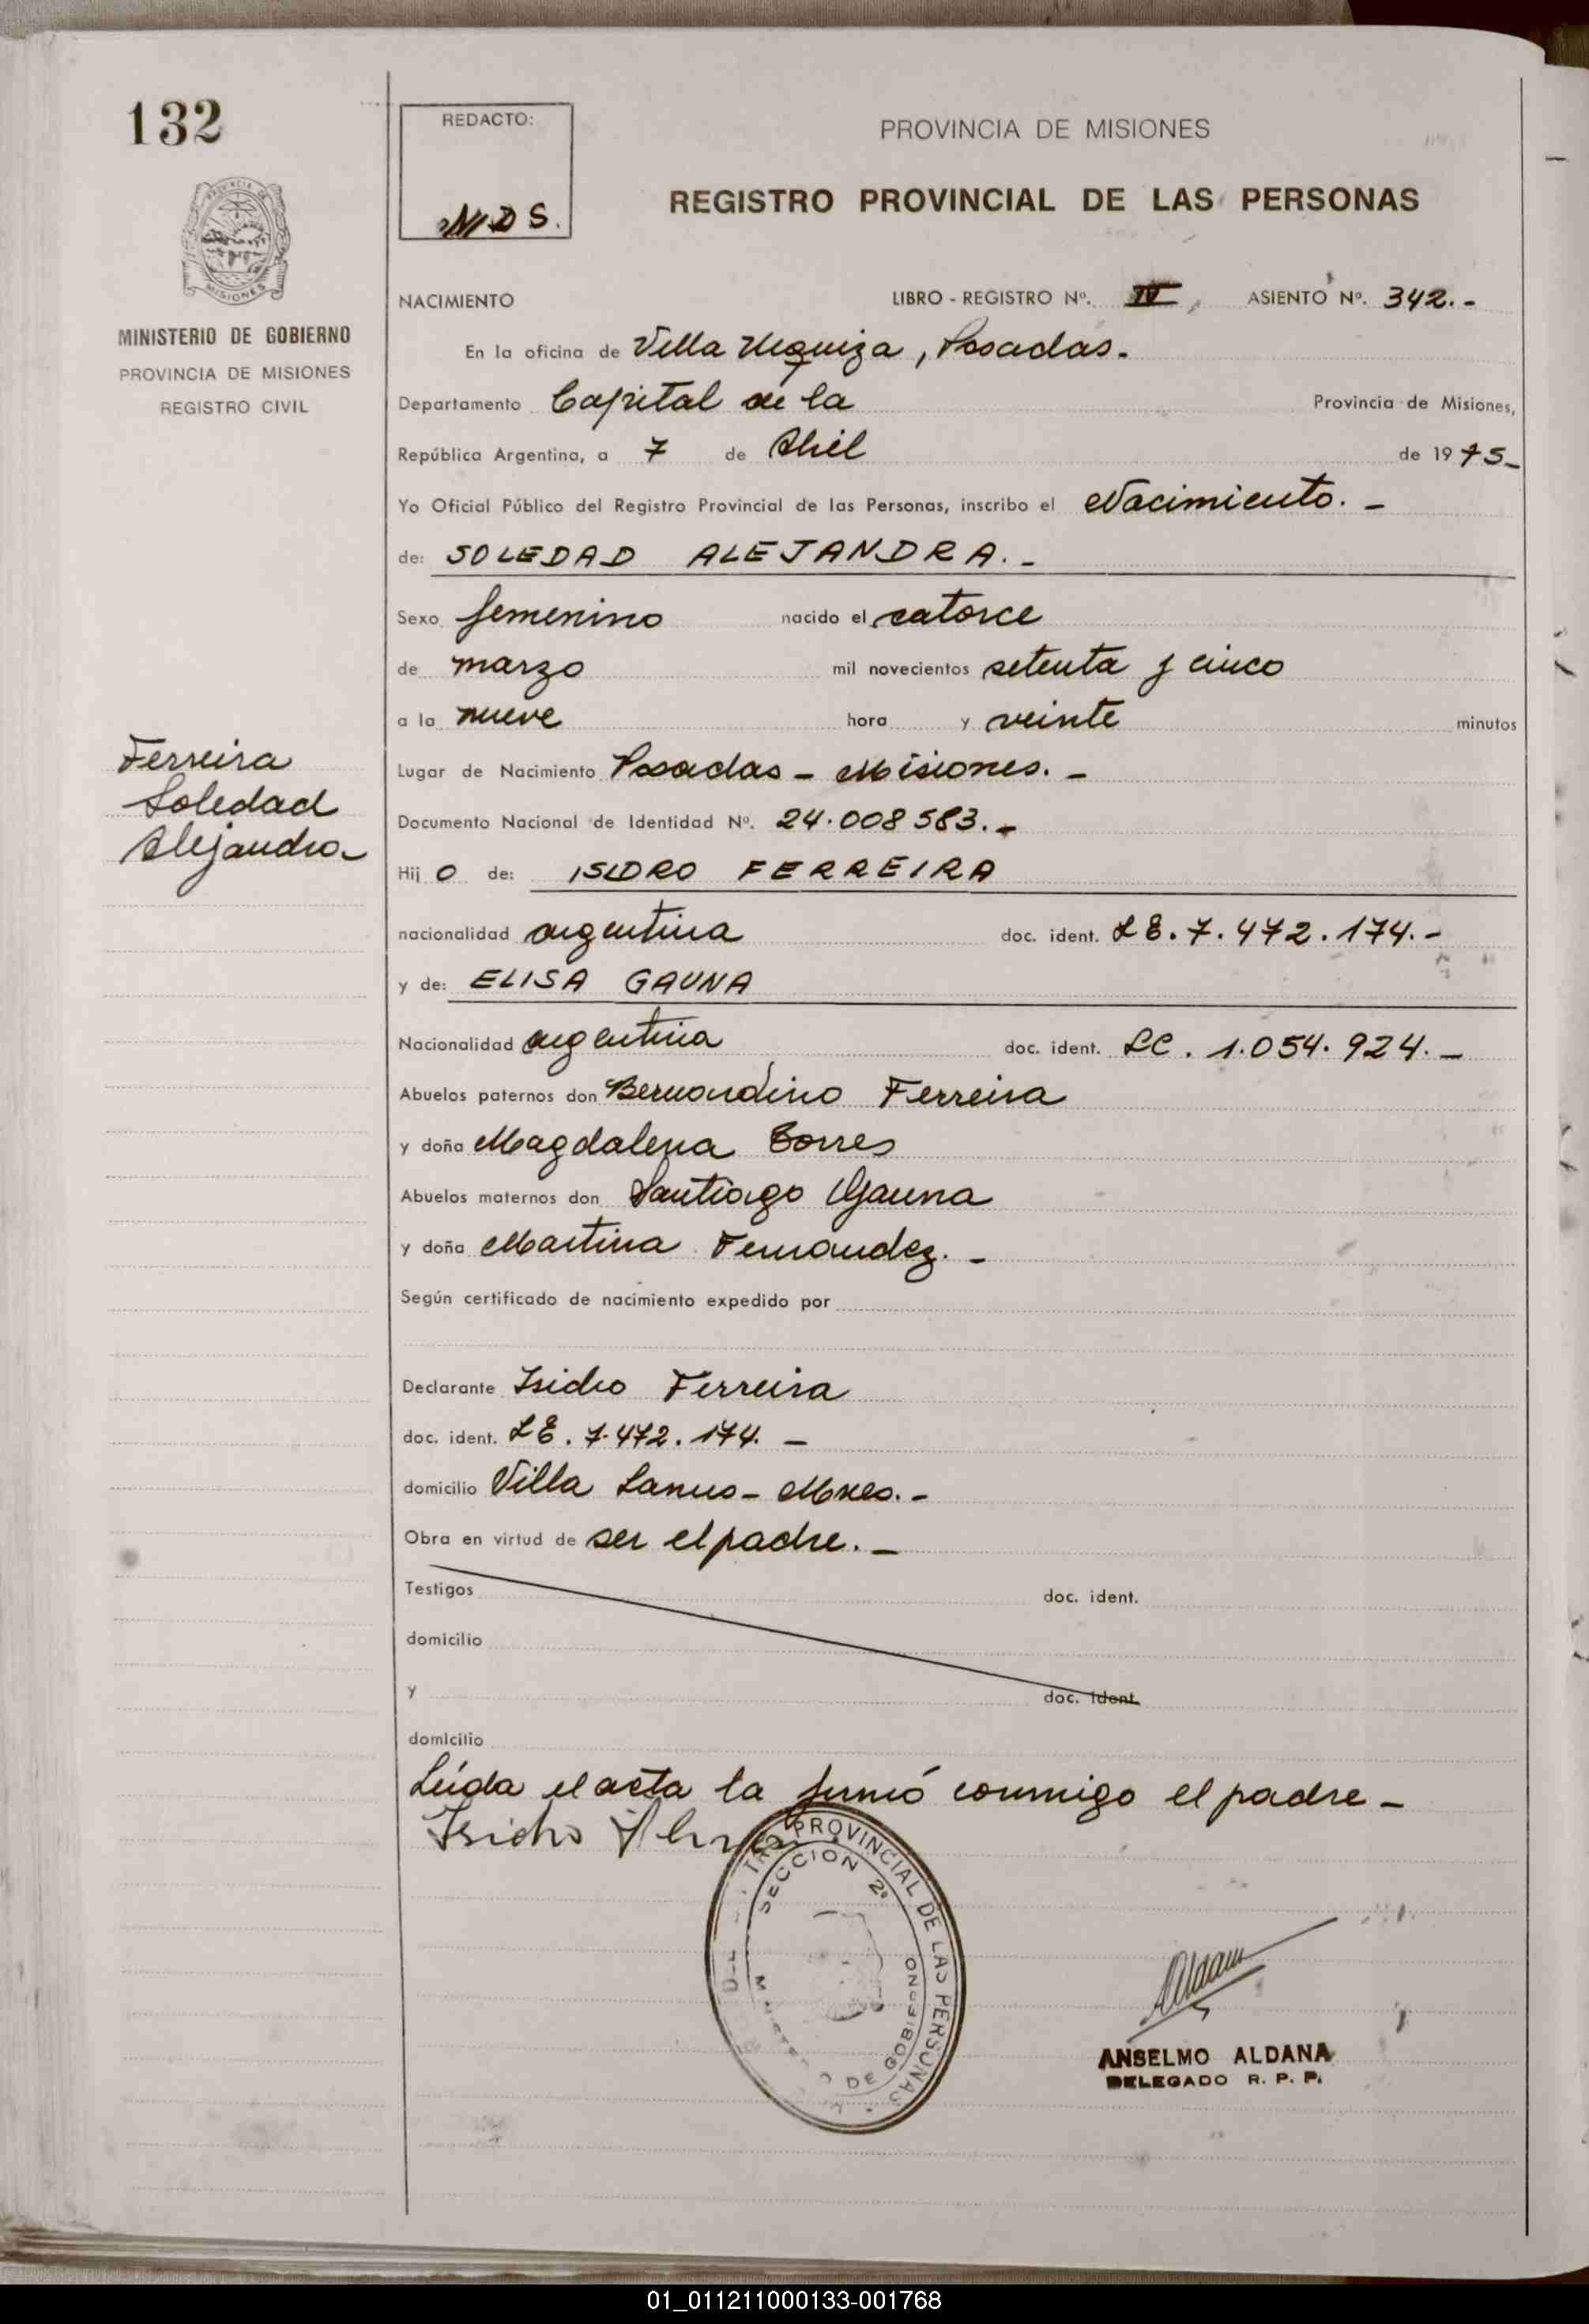 132
REDACTO:
MDS.
PROVINCIA DE MISIONES
REGISTRO PROVINCIAL DE LAS PERSONAS
MISIONES
MINISTERIO DE GOBIERNO
PROVINCIA DE MISIONES
REGISTRO CIVIL
NACIMIENTO LIBRO - REGISTRO Nº. IV ASIENTO Nº. 342.-
En la oficina de Villa Urquiza, Posadas.-
Departamento Capital de la Provincia de Misiones,
República Argentina, a 7 de Abril de 1975-
Yo Oficial Público del Registro Provincial de las Personas, inscribo el Nacimiento.-
de: SOLEDAD ALEJANDRA.-
Sexo femenino nacido el catorce
de marzo mil novecientos setenta y cinco
a la nueve hora y veinte minutos
Ferreira
Soledad
Alejandra
Lugar de Nacimiento Posadas - Misiones.-
Documento Nacional de Identidad Nº. 24.008583.-
Hij O de: ISIDRO FERREIRA
nacionalidad argentina doc. ident. LE.7.472.174.-
y de: ELISA GAUNA
Nacionalidad argentina doc. ident. LC. 1.054.924.-
Abuelos paternos don Bernardino Ferreira
y doña Magdalena Torres
Abuelos maternos don Santiago Gauna
y doña Martina Fernandez.-
Según certificado de nacimiento expedido por
Declarante Isidro Ferreira
doc. ident. LE. 7.472.174.-
domicilio Villa Lanus - Mnes.-
Obra en virtud de ser el padre.-
Testigos doc. ident.
domicilio
y doc. ident.
domicilio
Leída el acta la firmó conmigo el padre-
Isidro
PROVINCIAL DE LAS PERSONAS
SECCION 2º
DE GOBIERNO
Aldana
ANSELMO ALDANA
DELEGADO R. P. P.
01_011211000133-001768